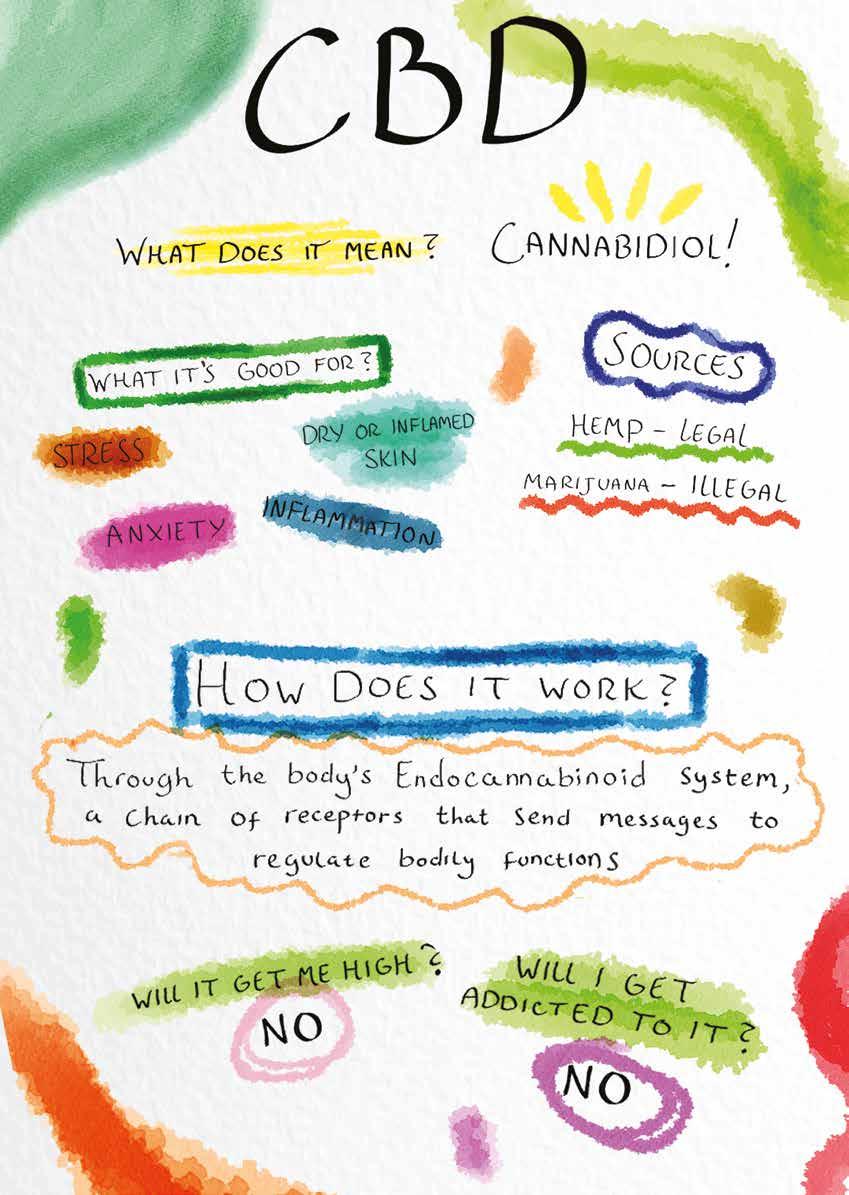 CBD
WHAT DOES IT MEAN?
CANNABIDIOL!
WHAT IT'S GOOD FOR?
STRESS
DRY OR INFLAMED
SKIN
ANXIETY
INFLAMMATION
SOURCES
HEMP - LEGAL
MARIJUANA - ILLEGAL
HOW DOES IT WORK?
Through the body's Endocannabinoid System,
a Chain of receptors that Send messages to
regulate bodily functions
WILL IT GET ME HIGH?
NO
WILL I GET
ADDICTED TO IT?
NO